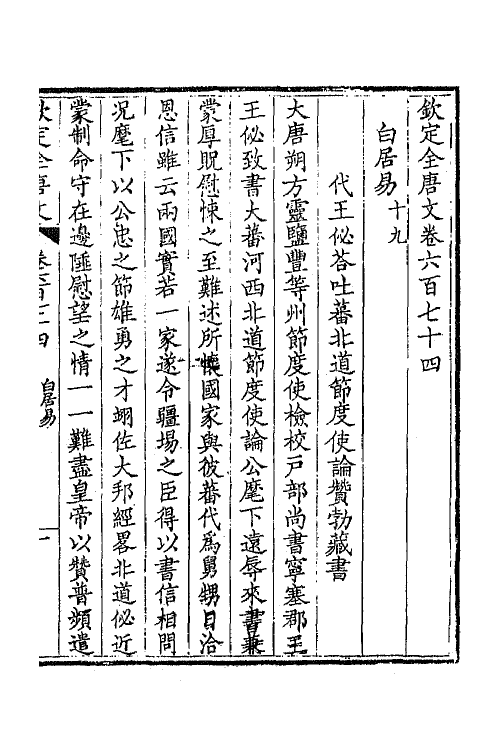 欽定全唐文卷六百七十四
白居易十九
代王佖答吐蕃北道節度使論贊勃藏書
大唐朔方靈鹽豐等州節度使檢校戸部尚書寧塞郡王
王佖致書大蕃河西北道節度使論公麾下遠辱來書兼
蒙厚貺慰悚之至難述所懷國家與彼蕃代爲舅甥日洽
恩信雖云兩國實若一家遂令疆場之臣得以書信相問
况麾下以公忠之節雄勇之才翊佐大邦經畧北道佖近
蒙制命守在邊陲慰望之情一一難盡皇帝以贊普頻遣
欽定全唐文 卷六百七十四 白居易 一